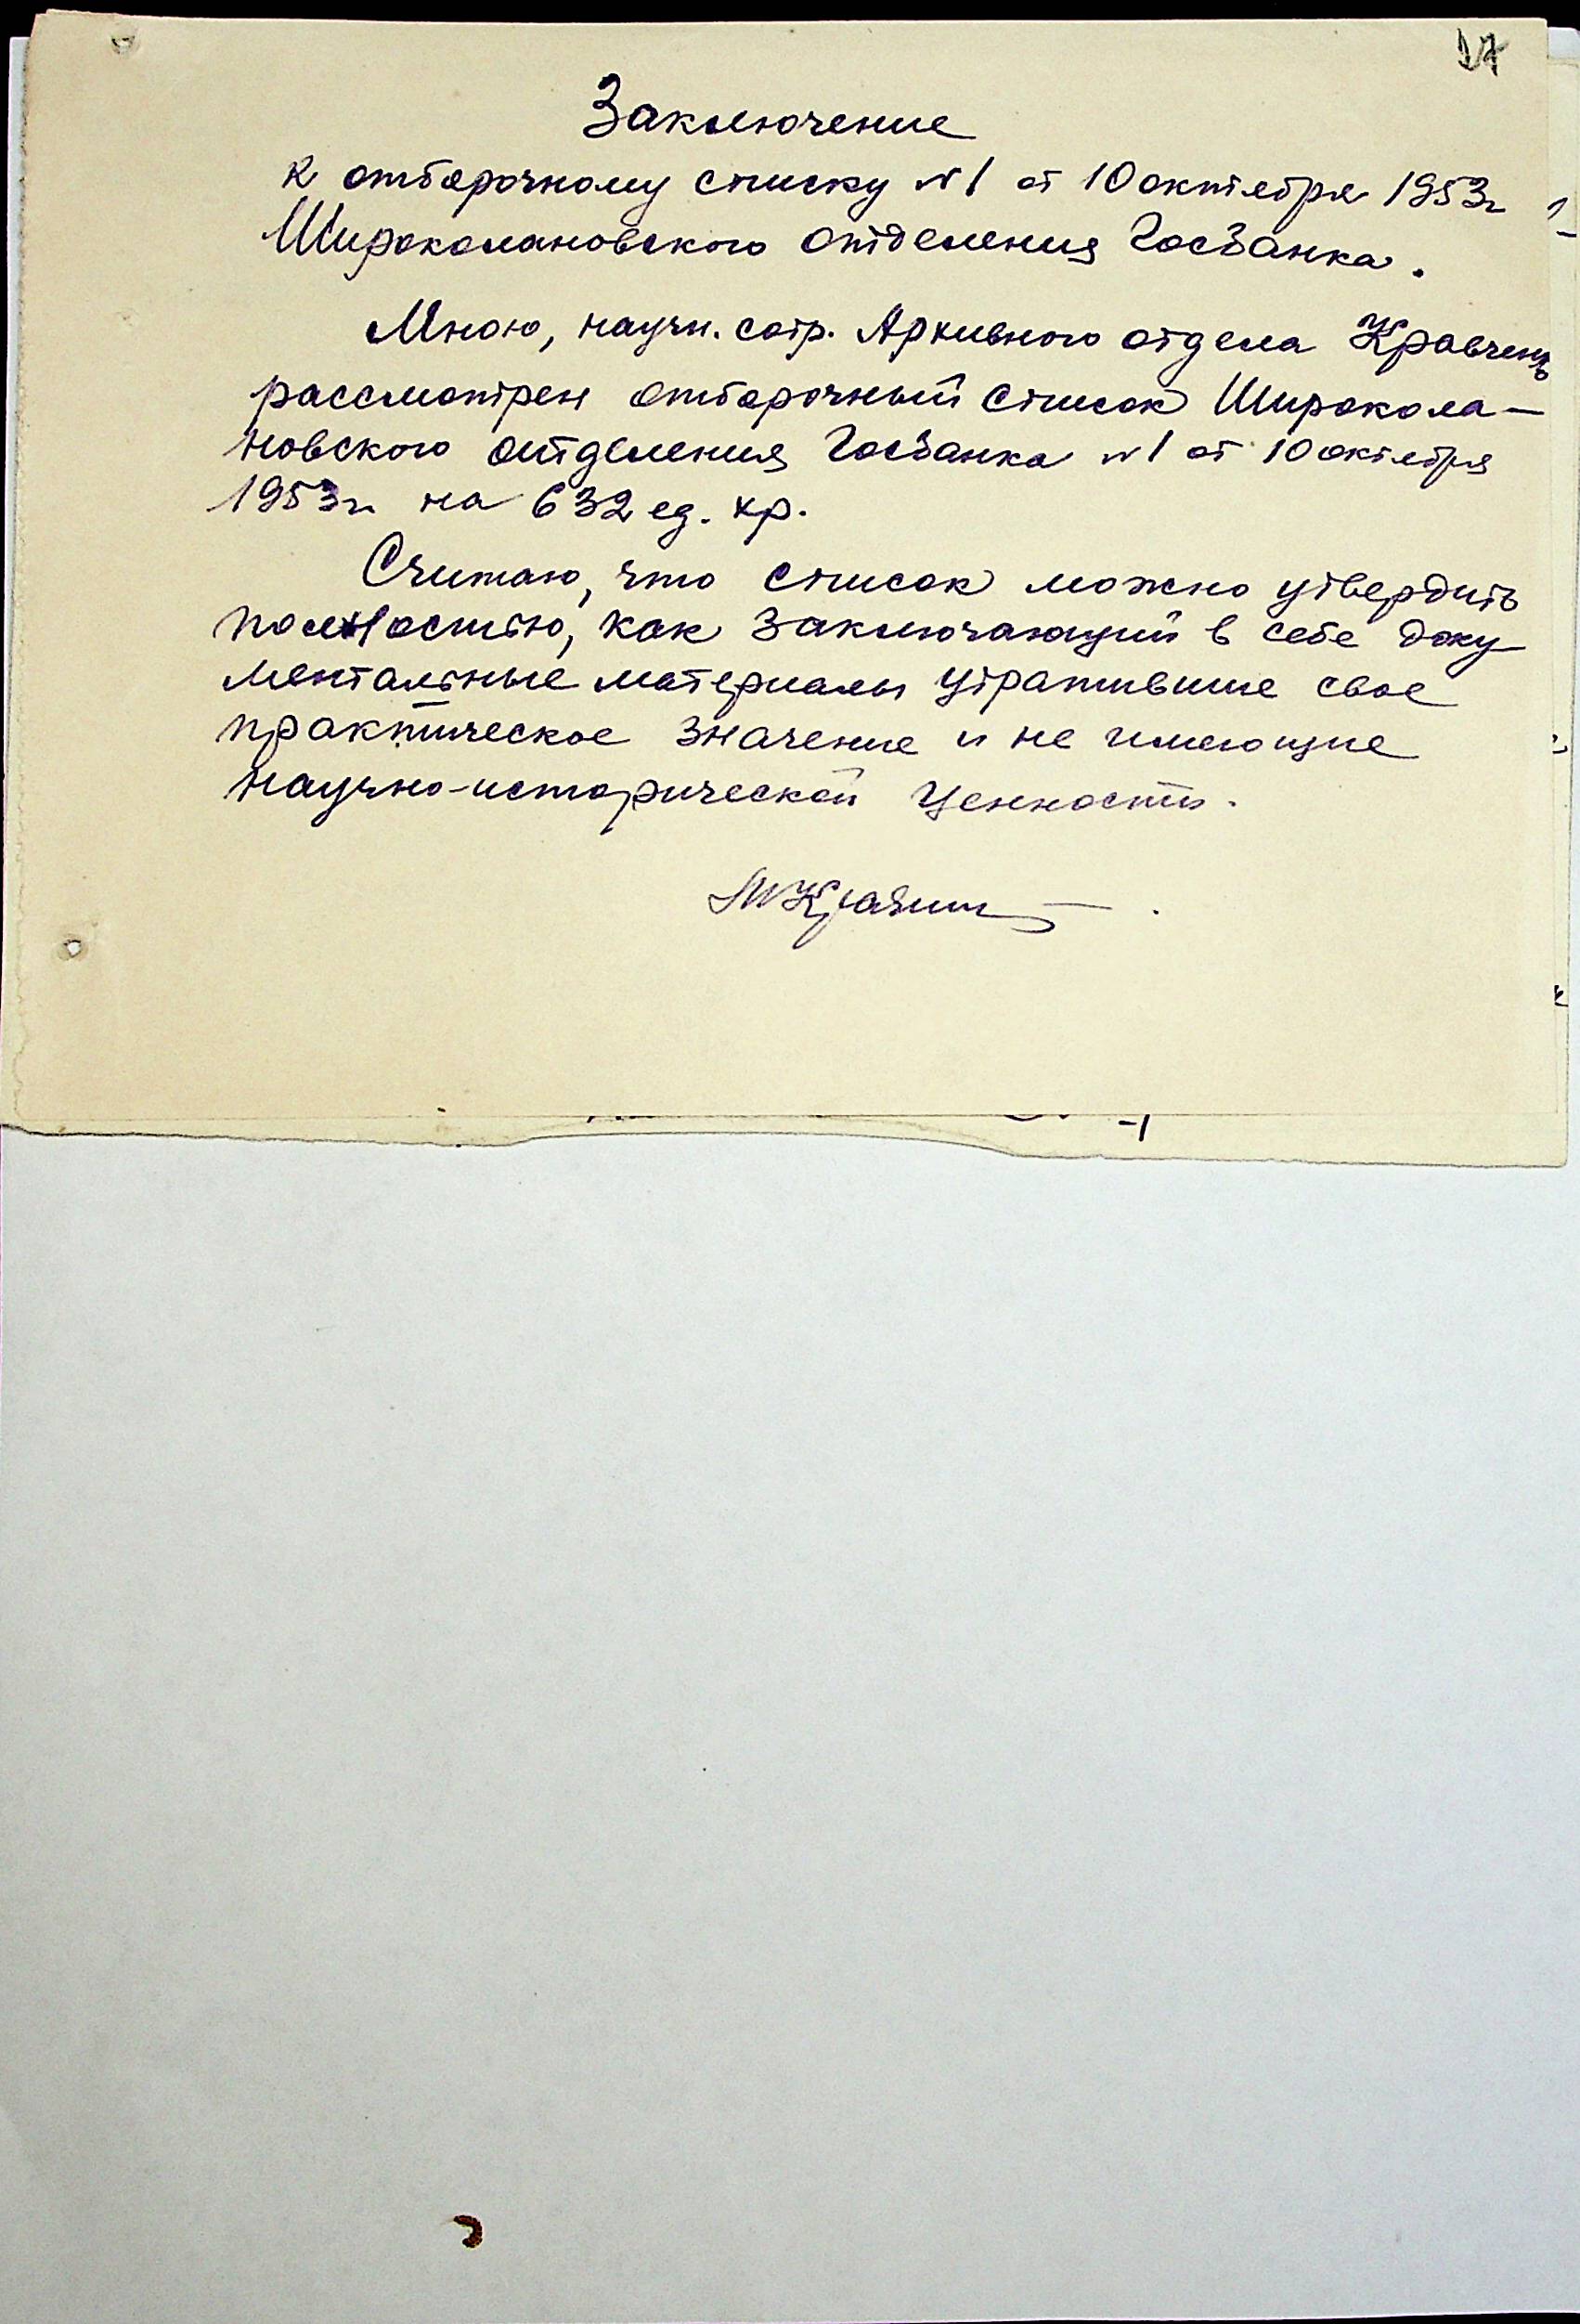 17
Заключение
к отборочному списку №1 от 10 октября 1953г
Широколановского отделения Госбанка.
Мною, научн. сотр. Архивного отдела Кравченко
рассмотрен отборочный список Широкола-
новского отделения Госбанка №1 от 10 октября
1953г. на 632 ед. хр.
Считаю, что список можно утвердить
полностью, как заключающий в себе доку
ментальные материалы утратившие свое
практическое значение и не имеющие
научно-исторической ценности.